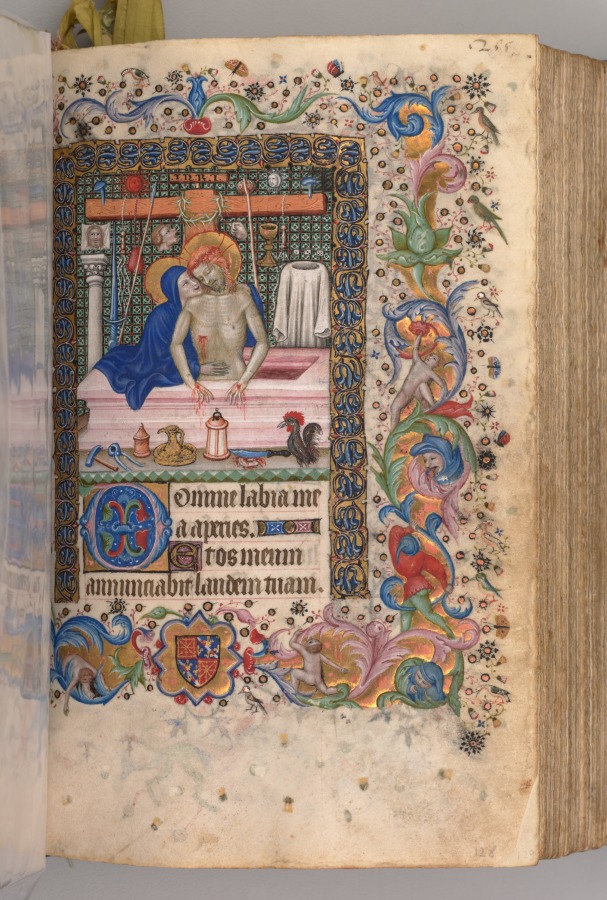 255
INRI
Domine labia me
a aperies.
Et os meum
annunciabit laudem tuam.
128